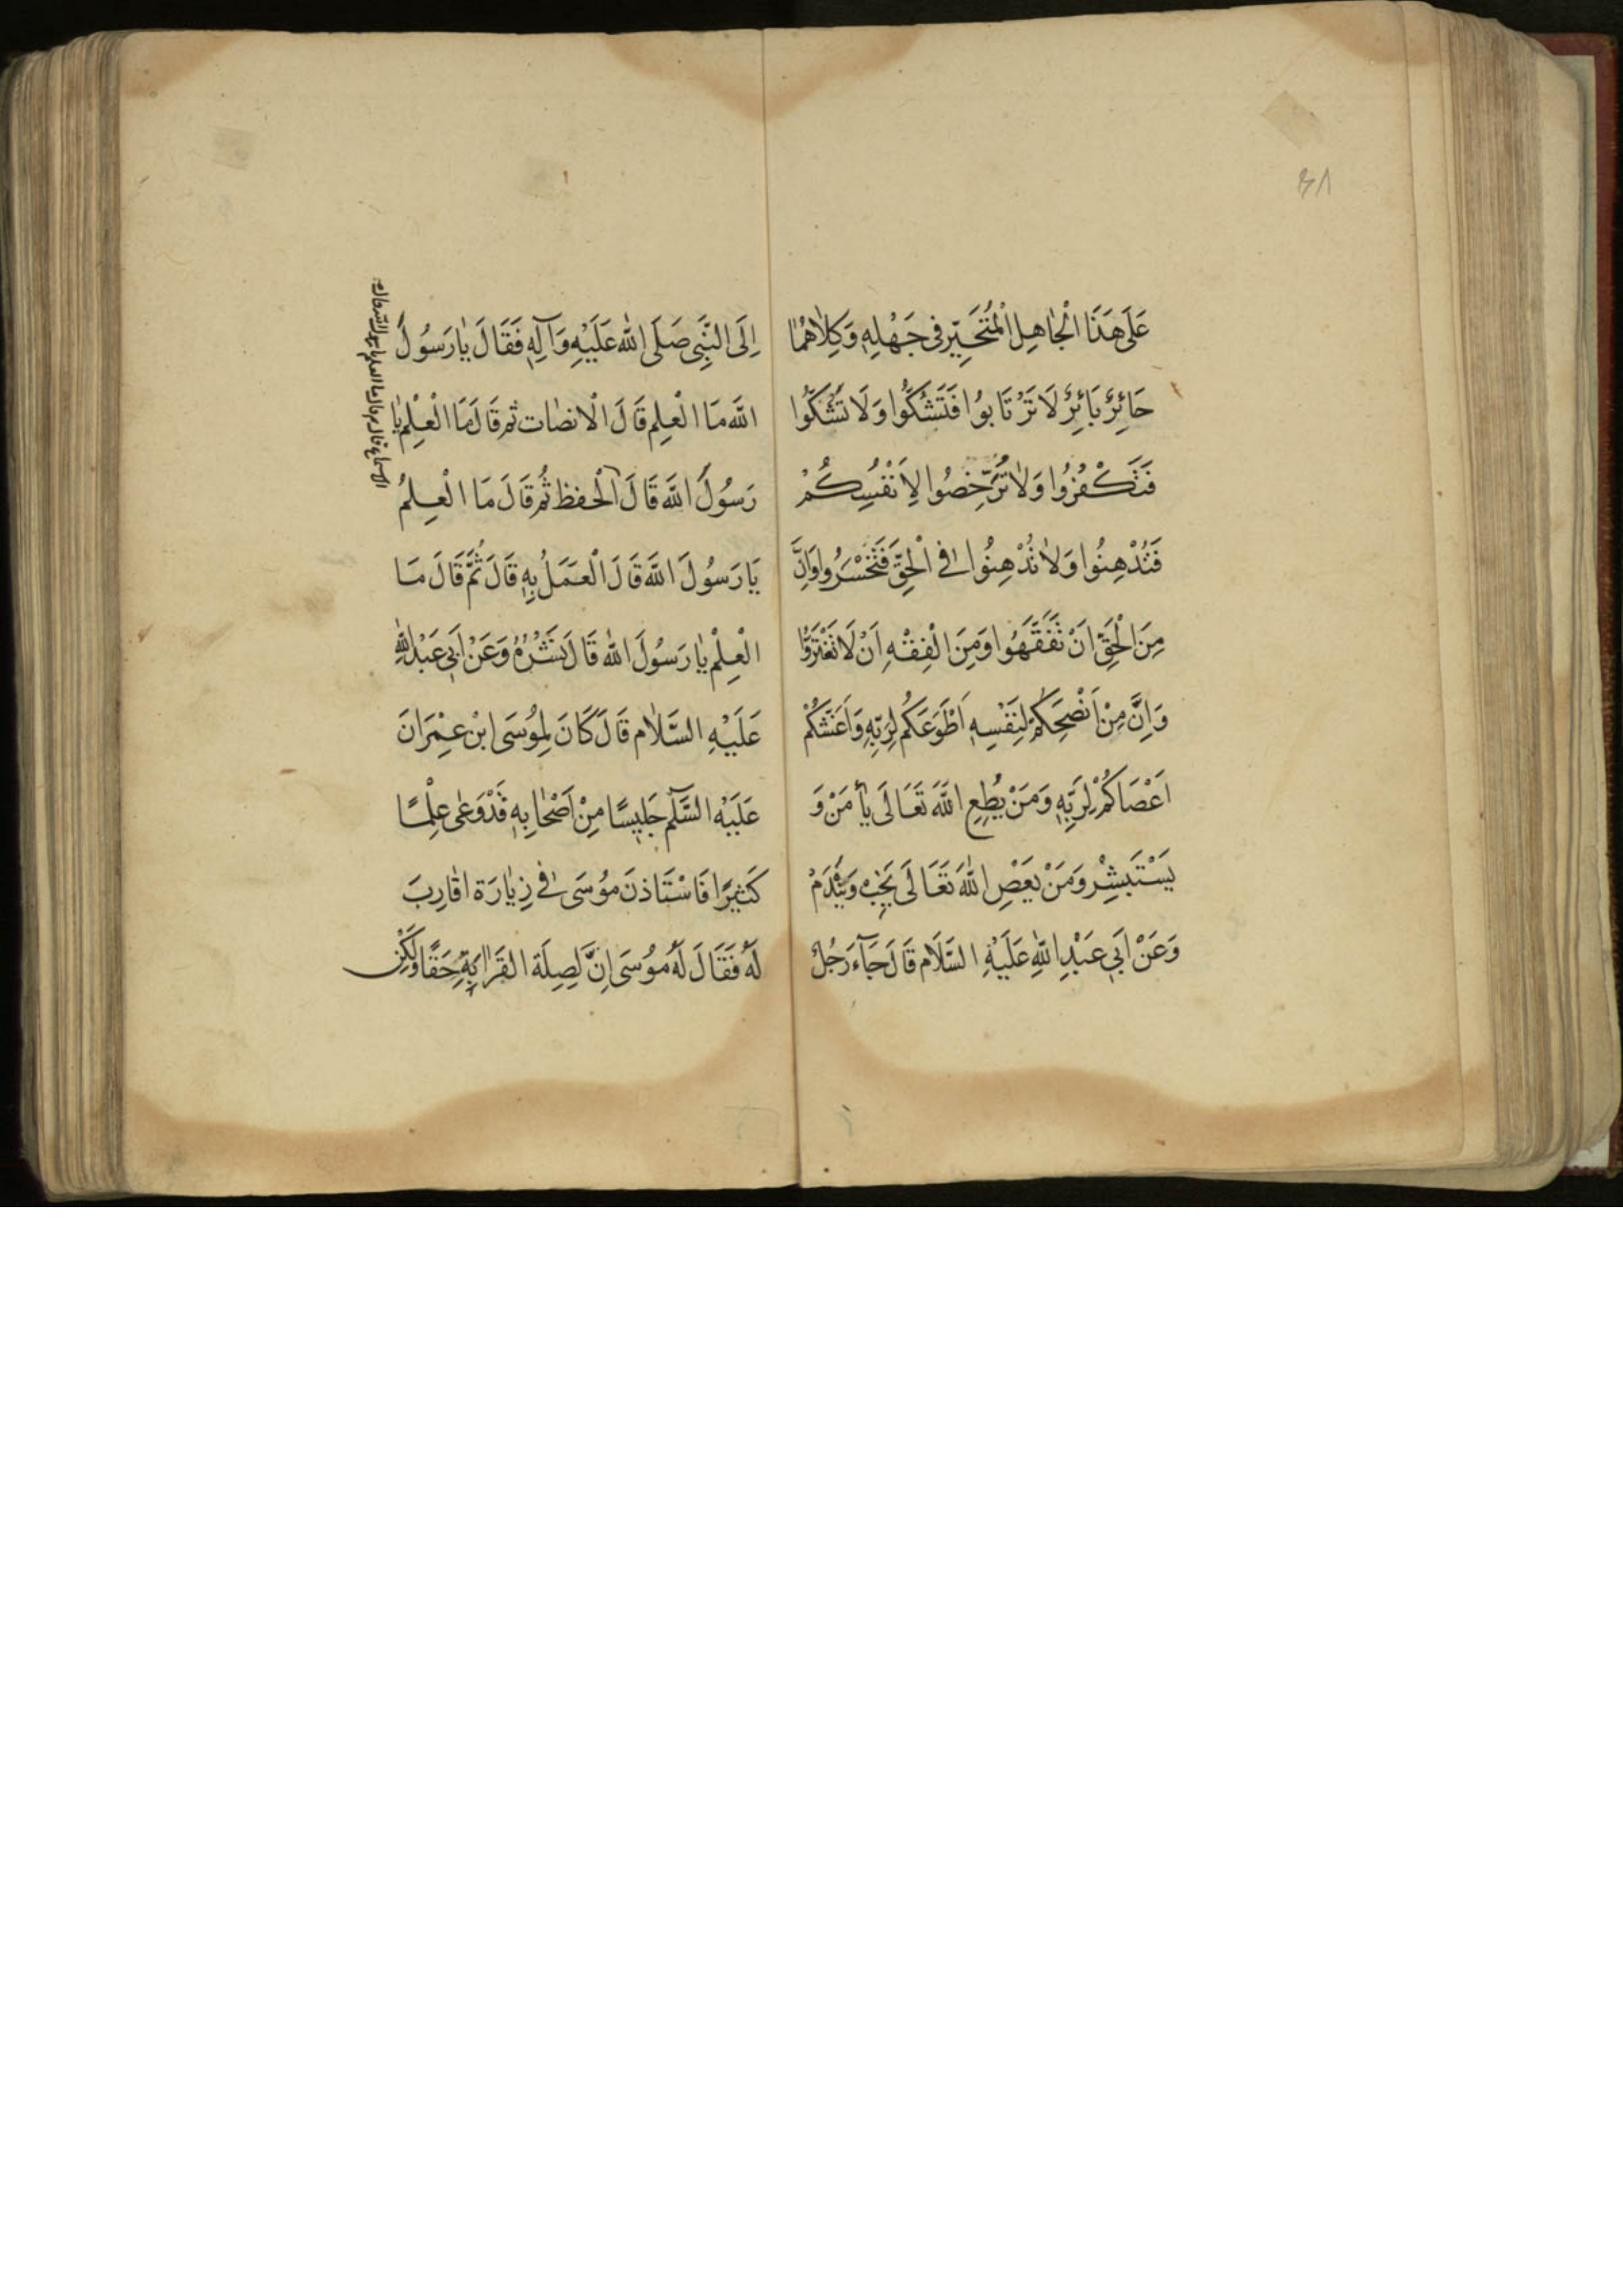 ٣٨
عَلَى هَذَا الْجَاهِلِ الْمُتَحَيِّرِ فِى جَهْلِهِ وَكِلَاهُمَا
حَائِرٌ بَائِرٌ لَا تَرْتَابُوا فَتَشُكُّوا وَلَا تَشُكُّوا
فَتَكْفُرُوا وَلَا تُرَخِّصُوا لِاَنْفُسِكُمْ
فَتُدْهِنُوا وَلَا تُدْهِنُوا فِى الْحَقِّ فَتَخْسَرُوا وَاِنَّ
مِنَ الْحَقِّ اَنْ تَفَقَّهُوا وَمِنَ الْفِقْهِ اَنْ لَا تَغْتَرُّوا
وَاِنَّ مِنْ اَنْصَحِكُمْ لِنَفْسِهِ اَطْوَعَكُمْ لِرَبِّهِ وَاَغَشَّكُمْ
اَعْصَاكُمْ لِرَبِّهِ وَمَنْ يُطِعِ اللَّهَ تَعَالَى يَأْمَنْ وَ
يَسْتَبْشِرْ وَمَنْ يَعْصِ اللَّهَ تَعَالَى يَخِبْ وَيَنْدَمْ
وَعَنْ اَبِى عَبْدِ اللَّهِ عَلَيْهِ السَّلَام قَالَ جَآءَ رَجُلٌ
اِلَى النَّبِى صَلَى اللَّه عَلَيْهِ وَآلِهِ فَقَالَ يَا رَسُولَ
اللَّه مَا الْعِلم قَالَ الْانصَات ثم قَالَ مَا الْعِلْم يَا
رَسُولَ اللَّه قَالَ الْحفظ ثُم قَالَ مَا الْعِلمُ
يَا رَسُولَ اللَّه قَالَ الْعَمَلُ بِهِ قَالَ ثُمَّ قَالَ مَا
الْعِلْم يَا رَسُولَ اللَّه قَالَ نَشْرُهُ وَعَنْ اَبِى عَبْدِ اللَّهِ
عَلَيْهِ السَّلَام قَالَ كَانَ لِمُوسَى ابْن عِمْرَانَ
عَلَيْهِ السَّلَم جَلِيسًا مِنْ اَصْحَابِهِ قَدْ وَعَى عِلْمًا
كَثِيرًا فَاسْتَاذنَ مُوسَى فِى زِيَارَة اقَارِبَ
لَهُ فَقَالَ لَهُ مُوسَى اِنَّ لِصِلَة القَرَابَةِ حَقًا وَلَكِن